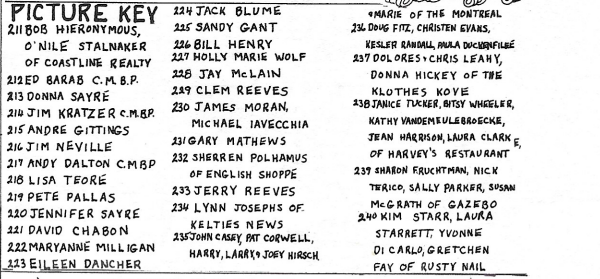 PICTURE KEY
211 BOB HIERONYMOUS,
O'NILE STALNAKER
OF COASTLINE REALTY
212 ED BARAB C.M.B.P.
213 DONNA SAYRE
214 JIM KRATZER C.M.B.P.
215 ANDRE GITTINGS
216 JIM NEVILLE
217 ANDY DALTON C.M.B.P
218 LISA TEORE
219 PETE PALLAS
220 JENNIFER SAYRE
221 DAVID CHABON
222 MARYANNE MILLIGAN
223 EILEEN DANCHER
224 JACK BLUME
225 SANDY GANT
226 BILL HENRY
227 HOLLY MARIE WOLF
228 JAY McLAIN
229 CLEM REEVES
230 JAMES MORAN,
MICHAEL IAVECCHIA
231 GARY MATHEWS
232 SHERREN POLHAMUS
OF ENGLISH SHOPPE
233 JERRY REEVES
234 LYNN JOSEPHS OF
KELTIES NEWS
235 JOHN CASEY, PAT CORWELL,
HARRY, LARRY & JOEY HIRSCH
& MARIE OF THE MONTREAL
236 DOUG FITZ, CHRISTEN EVANS,
KESLER RANDALL, PAULA DUCKENFILEE
237 DOLORES & CHRIS LEAHY,
DONNA HICKEY OF THE
KLOTHES KOVE
238 JANICE TUCKER, BITSY WHEELER,
KATHY VANDEMEULEBROECKE,
JEAN HARRISON, LAURA CLARKE,
OF HARVEY'S RESTAURANT
239 SHARON FRUCHTMAN, NICK
TERICO, SALLY PARKER, SUSAN
McGRATH OF GAZEBO
240 KIM STARR, LAURA
STARRETT, YVONNE
DI CARLO, GRETCHEN
FAY OF RUSTY NAIL